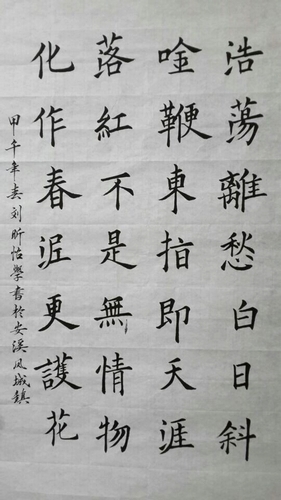 浩蕩離愁白日斜
唫鞭東指即天涯
落紅不是無情物
化作春泥更護花
甲午年春刘昕怡學書於安溪凤城鎮